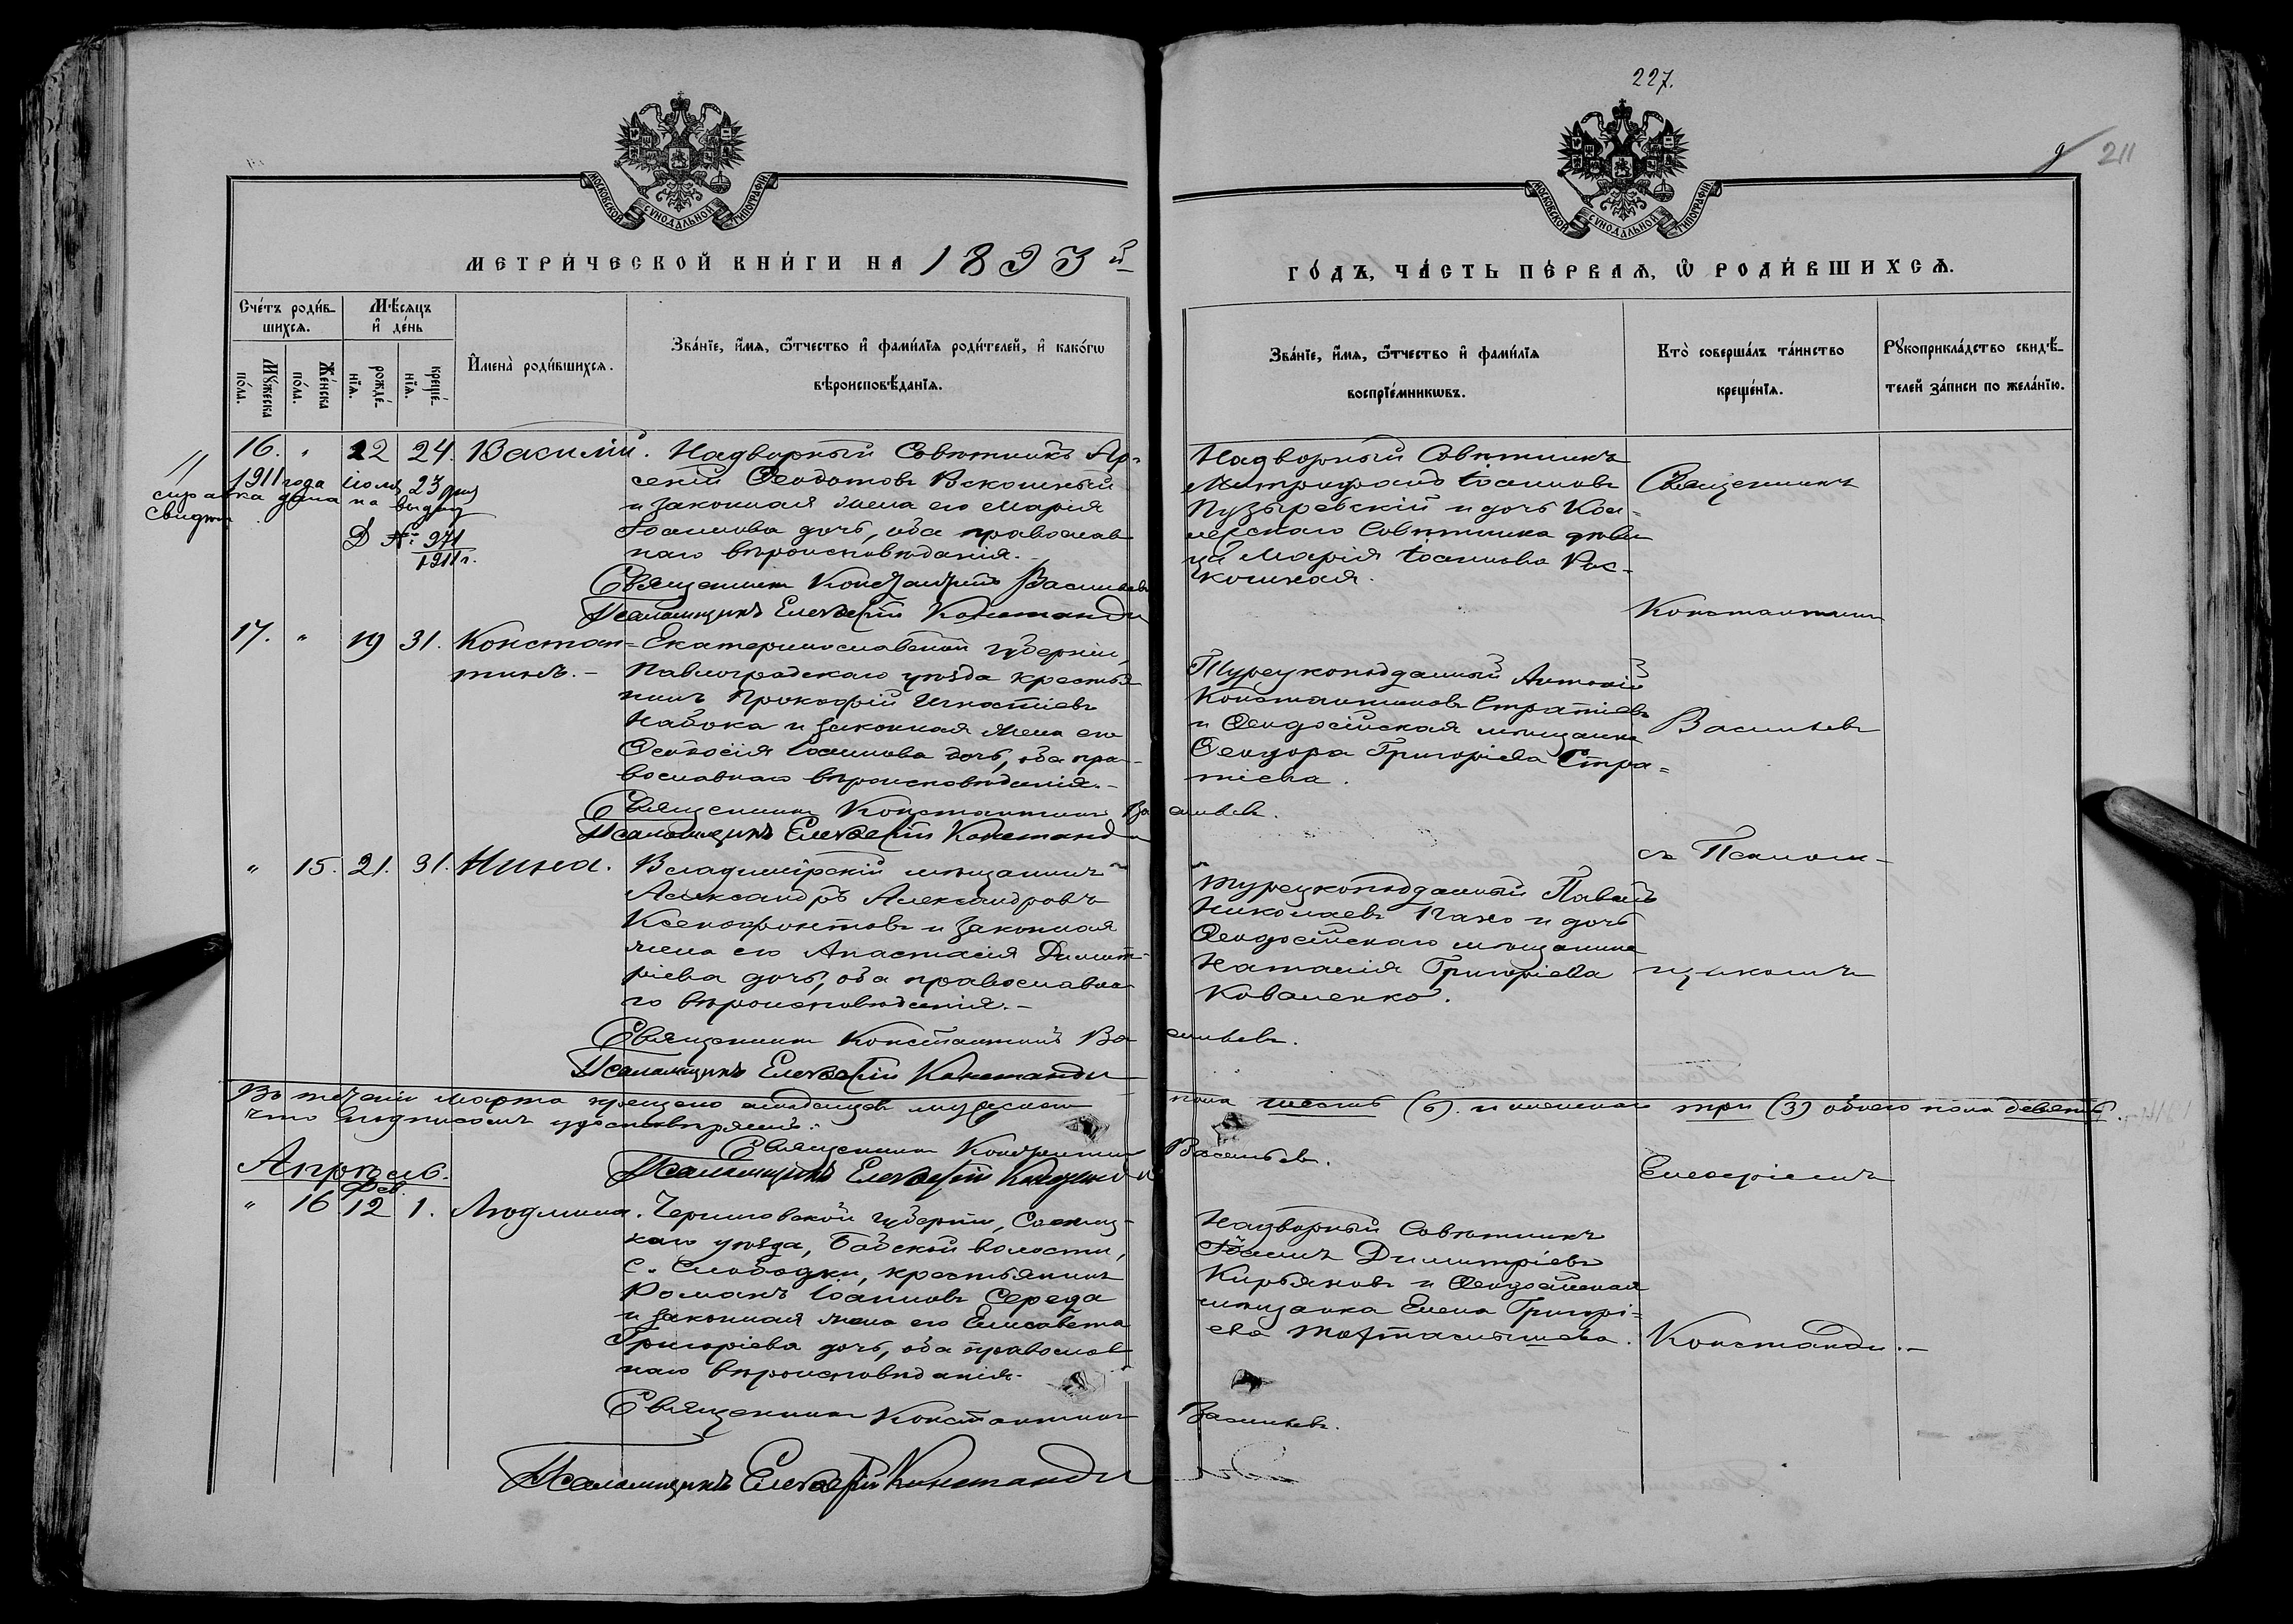 227.
211
МОСКОВСКОЙ СУНОДАЛЬНОЙ ТИПОГРАФІИ
МОСКОВСКОЙ СУНОДАЛЬНОЙ ТИПОГРАФІИ
МЕТРИ́ЧЕСКОЙ КНИ́ГИ НА 1893 й
ГО́ДЪ, ЧА́СТЬ ПЕ́РВАѦ, Ѽ РОДИ́ВШИХСѦ.
Сче́тъ роди́в-
шихсѧ.
Мѣ́сѧцъ
и҆ де́нь
Мꙋ́жеска
по́ла.
Же́нска
по́ла.
рожде́-
нїѧ.
креще́-
нїѧ.
И҆мена̀ роди́вшихсѧ.
Зва́нїе, и҆́мѧ, ѻ҆́тчество и҆ фами́лїѧ роди́телей, и҆ како́гѡ
вѣроисповѣ́данїѧ.
Зва́нїе, и҆́мѧ, ѻ҆́тчество и҆ фами́лїѧ
воспрїе́мникѡвъ.
Кто̀ соверша́лъ та́инство
креще́нїѧ.
Рꙋкоприкла́дство свидѣ́-
телей за́писи по жела́нїю.
16. " 22 24. Василій.
1911 года іюля 23 дня
справка дана на выдачу
свидѣт
Д №: 971
1911 г.
Надворный Совѣтникъ Ар-
сеній Ѳеодотовъ Роскошный
и законная жена его Марія
Іоаннова дочь, оба православ
наго вѣроисповѣданія.-
Священникъ Константинъ Васильевъ
Псаломщикъ Елевѳерій Константи
Надворный Совѣтникъ
Митрофанъ Іоанновъ
Пузыревскій и дочь Кол-
лежскаго Совѣтника дѣви
ца Марія Іоаннова Рос-
кошная.
Священникъ
Константинъ
Васильевъ
съ Псалом-
щикомъ
Елевѳеріемъ
Константи.-
17. " 19 31. Констан-
тинъ.-
Екатеринославской губерніи,
Павлоградскаго уѣзда крестья
нинъ Прокофій Игнатіевъ
Набока и законная жена его
Ѳеодосія Іоаннова дочь, оба пра-
вославнаго вѣроисповѣданія.-
Священникъ Константинъ Васильевъ.
Псаломщикъ Елевѳерій Константи
Турецкоподданный Антоній
Константиновъ Стратіевъ
и Ѳеодосійская мѣщанка
Ѳеодора Григоріева Стра-
тіева.
" 15. 21. 31. Нина.
Владимірскій мѣщанинъ
Александръ Александровъ
Ксенофонтовъ и законная
жена его Анастасія Димит-
ріева дочь, оба православна
го вѣроисповѣданія.-
Священникъ Константинъ Васильевъ.
Псаломщикъ Елевѳерій Константи
Турецкоподданный Павелъ
Николаевъ и дочь
Ѳеодосійскаго мѣщанина
Наталія Григоріева
Коваленко.
Въ теченіи марта крещено младенцевъ мужескаго пола шесть (6). и женскаго три (3) обоего пола девять.
что подписомъ удостовѣряемъ:
Священникъ Константинъ Васильевъ.
Псаломщикъ Елевѳерій Константи
Апрѣль.
Фев.
" 16 12 1. Людмила.
Черниговской губерніи, Сосниц-
каго уѣзда, Бабской волости,
с. Слободки, крестьянинъ
Романъ Іоанновъ Середа
и законная жена его Елисавета
Григоріева дочь, оба православ
наго вѣроисповѣданія.
Священникъ Константинъ Васильевъ.
Псаломщикъ Елевѳерій Константи
Надворный Совѣтникъ
Іоаннъ Димитріевъ
Кирьяковъ и Ѳеодосійская
мѣщанка Елена Григорі-
ева